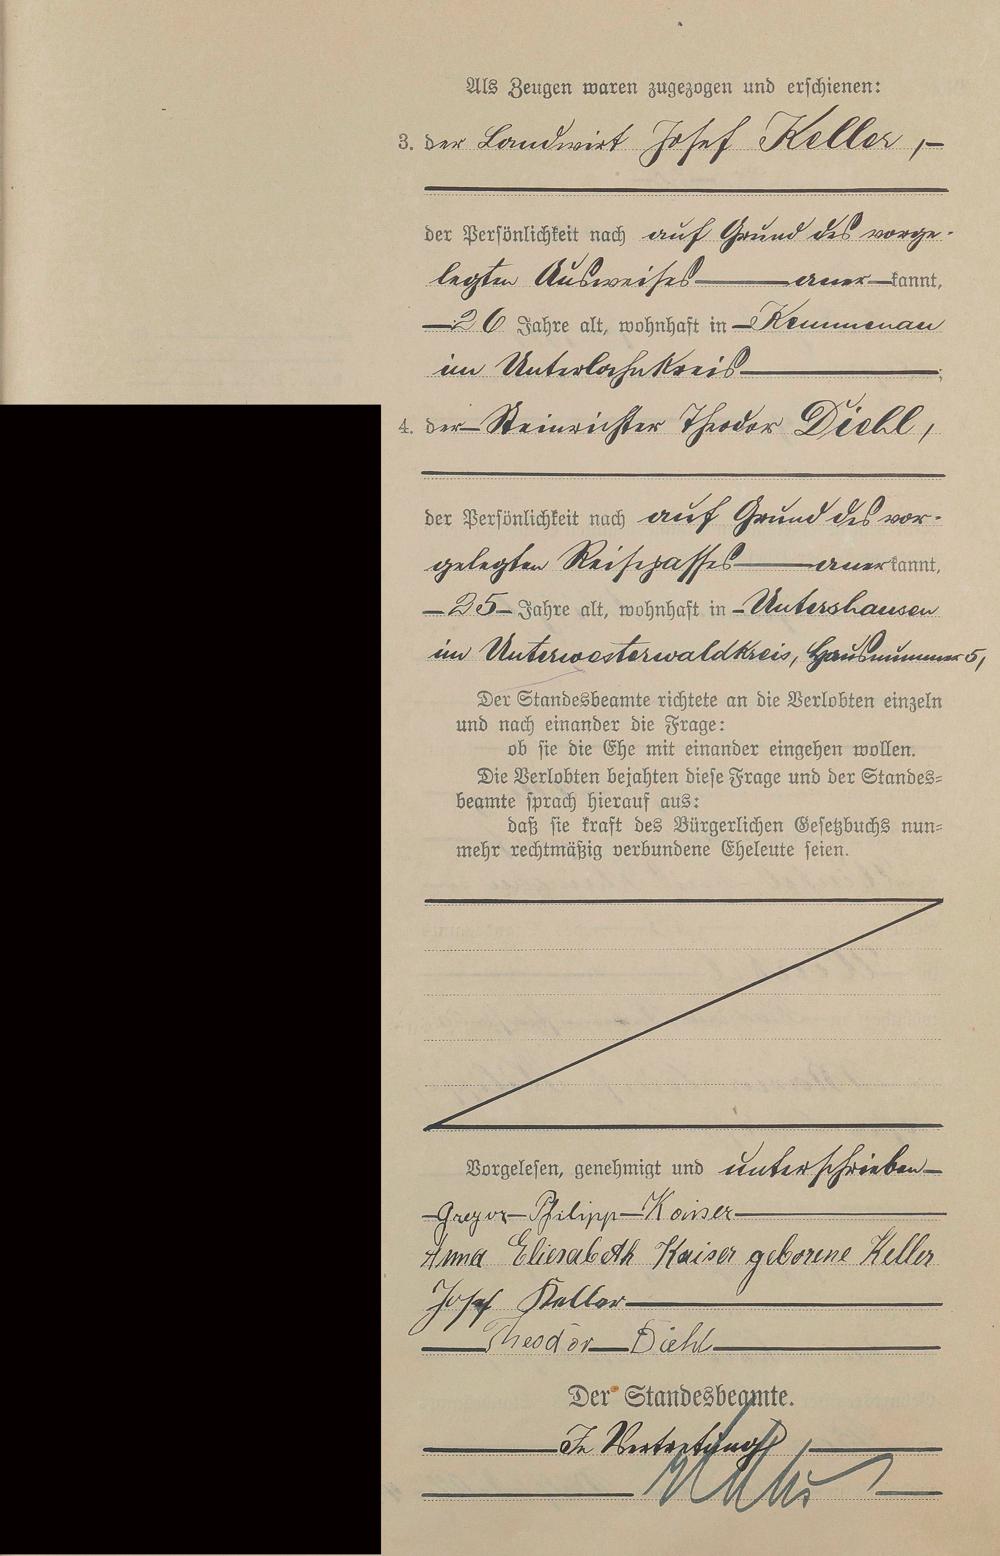 Als Zeugen waren zugezogen und erschienen:
3. der Landwirt Josef Keller,
der Persönlichkeit nach auf Grund des vorge-
legten Ausweises anerkannt,
26 Jahre alt, wohnhaft in Kemmenau
im Unterlahnkreis;
4. der Steinrichter Theodor Diehl,
der Persönlichkeit nach auf Grund des vor-
gelegten Reisepasses anerkannt,
25 Jahre alt, wohnhaft in Untershausen
im Unterwesterwaldkreis, Hausnummer 5,
Der Standesbeamte richtete an die Verlobten einzeln
und nach einander die Frage:
ob sie die Ehe mit einander eingehen wollen.
Die Verlobten bejahten diese Frage und der Standes-
beamte sprach hierauf aus:
daß sie kraft des Bürgerlichen Gesetzbuchs nun-
mehr rechtmäßig verbundene Eheleute seien.
Vorgelesen, genehmigt und unterschrieben
Gregor Philipp Kaiser
Anna Eliesabeth Kaiser geborene Keller
Josef Keller
Theodor Diehl
Der Standesbeamte.
In Vertretung